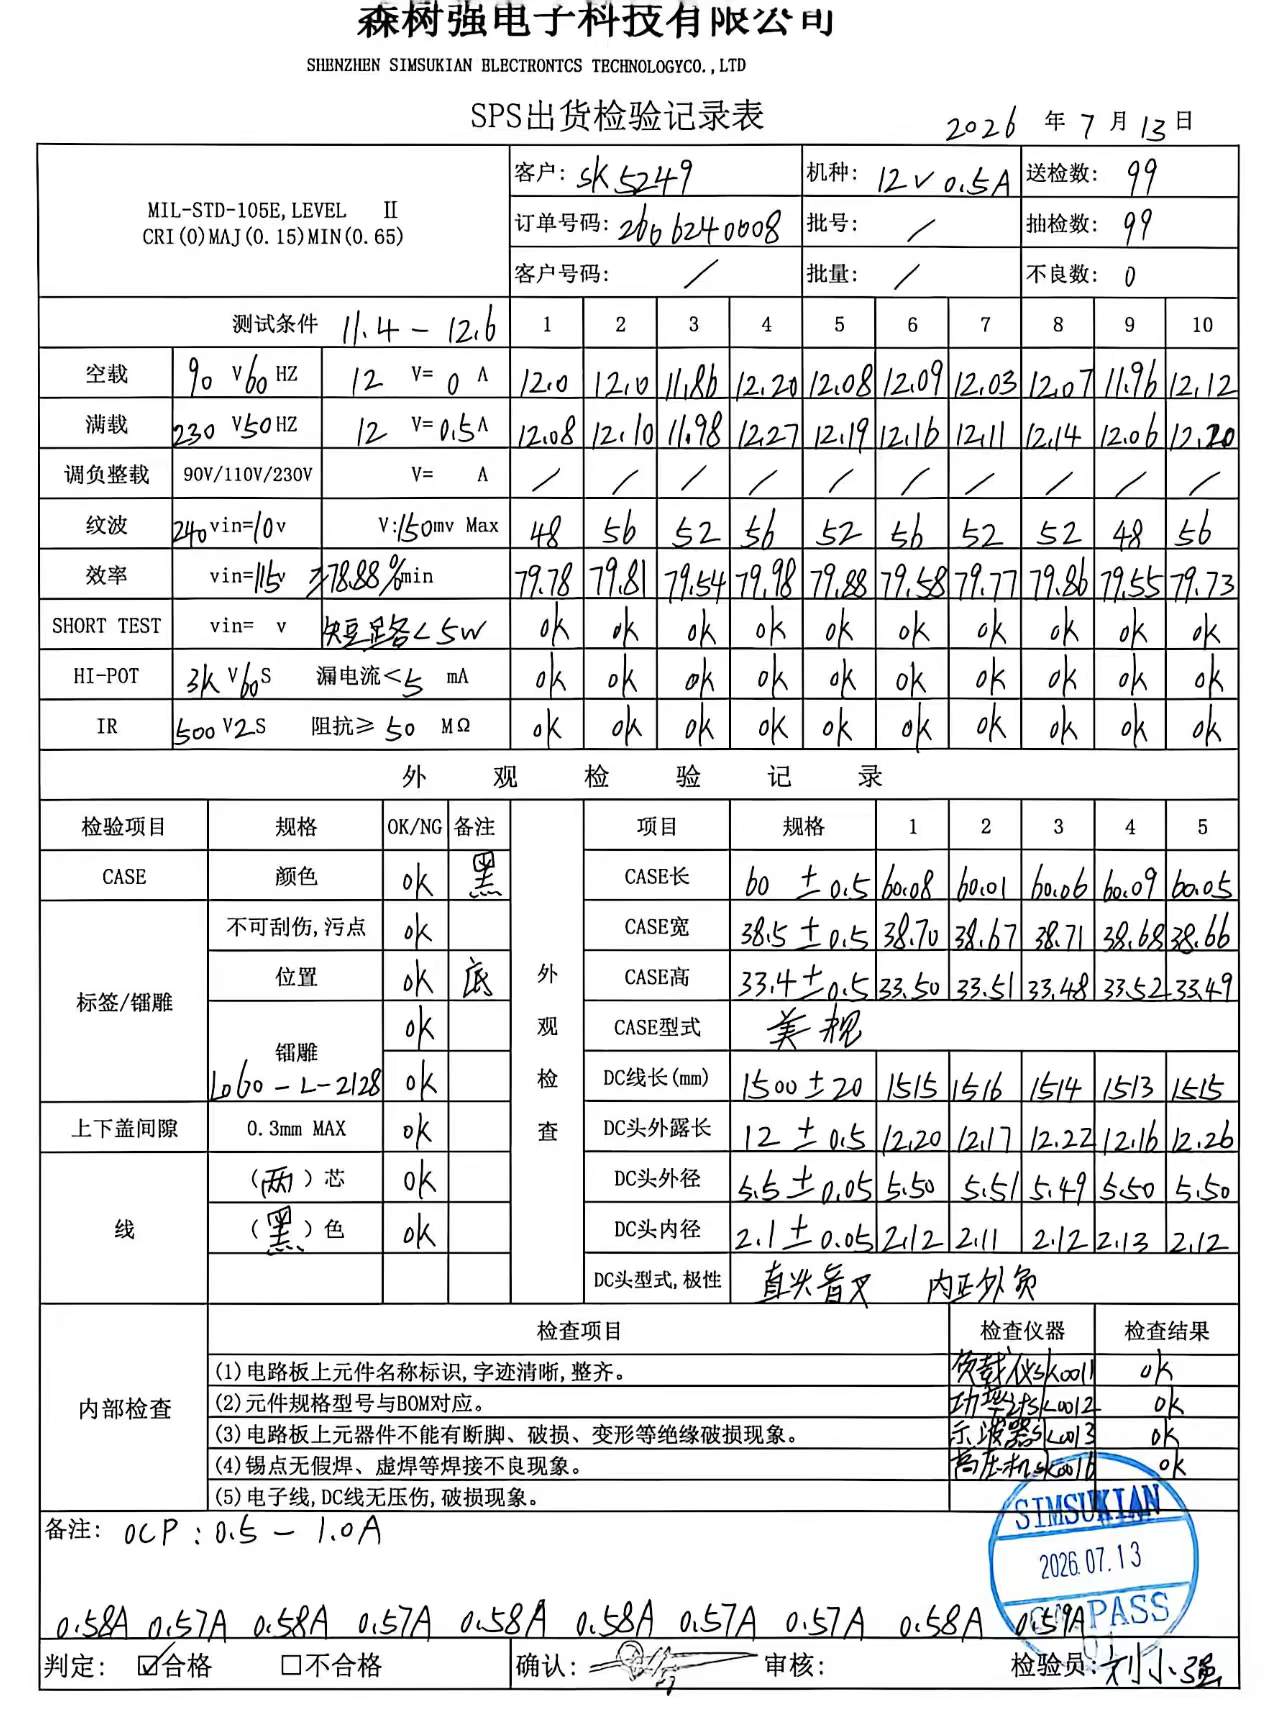 森树强电子科技有限公司
SHENZHEN SIMSUKIAN ELECTRONTCS TECHNOLOGYCO.,LTD
SPS出货检验记录表
2026 年 7 月 13 日
MIL-STD-105E,LEVEL Ⅱ
CRI(0)MAJ(0.15)MIN(0.65)
客户: SK5249 机种: 12V 0.5A 送检数: 99
订单号码: 2606240008 批号: / 抽检数: 99
客户号码: / 批量: / 不良数: 0
测试条件 11.4 - 12.6 1 2 3 4 5 6 7 8 9 10
空载 90 V 60 HZ 12 V= 0 A 12.0 12.10 11.86 12.20 12.08 12.09 12.03 12.07 11.96 12.12
满载 230 V 50 HZ 12 V= 0.5 A 12.08 12.10 11.98 12.27 12.19 12.16 12.11 12.14 12.06 12.20
调负整载 90V/110V/230V V= A / / / / / / / / / /
纹波 240 vin= 10 v V: 150 mv Max 48 56 52 56 52 56 52 52 48 56
效率 vin= 115 v ≥78.88% min 79.78 79.81 79.54 79.98 79.88 79.58 79.77 79.86 79.55 79.73
SHORT TEST vin= v 短路<5W ok ok ok ok ok ok ok ok ok ok
HI-POT 3K V 60 S 漏电流< 5 mA ok ok ok ok ok ok ok ok ok ok
IR 500 V 2 S 阻抗≥ 50 MΩ ok ok ok ok ok ok ok ok ok ok
外观检验记录
检验项目 规格 OK/NG 备注 项目 规格 1 2 3 4 5
CASE 颜色 ok 黑 CASE长 60 ±0.5 60.08 60.01 60.06 60.09 60.05
不可刮伤,污点 ok CASE宽 38.5 ±0.5 38.70 38.67 38.71 38.68 38.66
标签/镭雕 位置 ok 底 外观检查 CASE高 33.4 ±0.5 33.50 33.51 33.48 33.52 33.49
ok CASE型式 美规
镭雕 L060-L-2128 ok DC线长(mm) 1500 ±20 1515 1516 1514 1513 1515
上下盖间隙 0.3mm MAX ok DC头外露长 12 ±0.5 12.20 12.17 12.22 12.16 12.26
(两)芯 ok DC头外径 5.5 ±0.05 5.50 5.51 5.49 5.50 5.50
线 (黑)色 ok DC头内径 2.1 ±0.05 2.12 2.11 2.12 2.13 2.12
DC头型式,极性 直头音叉 内正外负
内部检查 检查项目 检查仪器 检查结果
(1)电路板上元件名称标识,字迹清晰,整齐。 负载仪SK0011 ok
(2)元件规格型号与BOM对应。 功率计SK0012 ok
(3)电路板上元器件不能有断脚、破损、变形等绝缘破损现象。 示波器SK0013 ok
(4)锡点无假焊、虚焊等焊接不良现象。 高压机SK0016 ok
(5)电子线,DC线无压伤,破损现象。
备注: OCP: 0.5 - 1.0A
SIMSUKIAN
2026.07.13
PASS
0.58A 0.57A 0.58A 0.57A 0.58A 0.58A 0.57A 0.57A 0.58A 0.59A
判定: ☑合格 □不合格 确认: 审核: 检验员: 刘小强